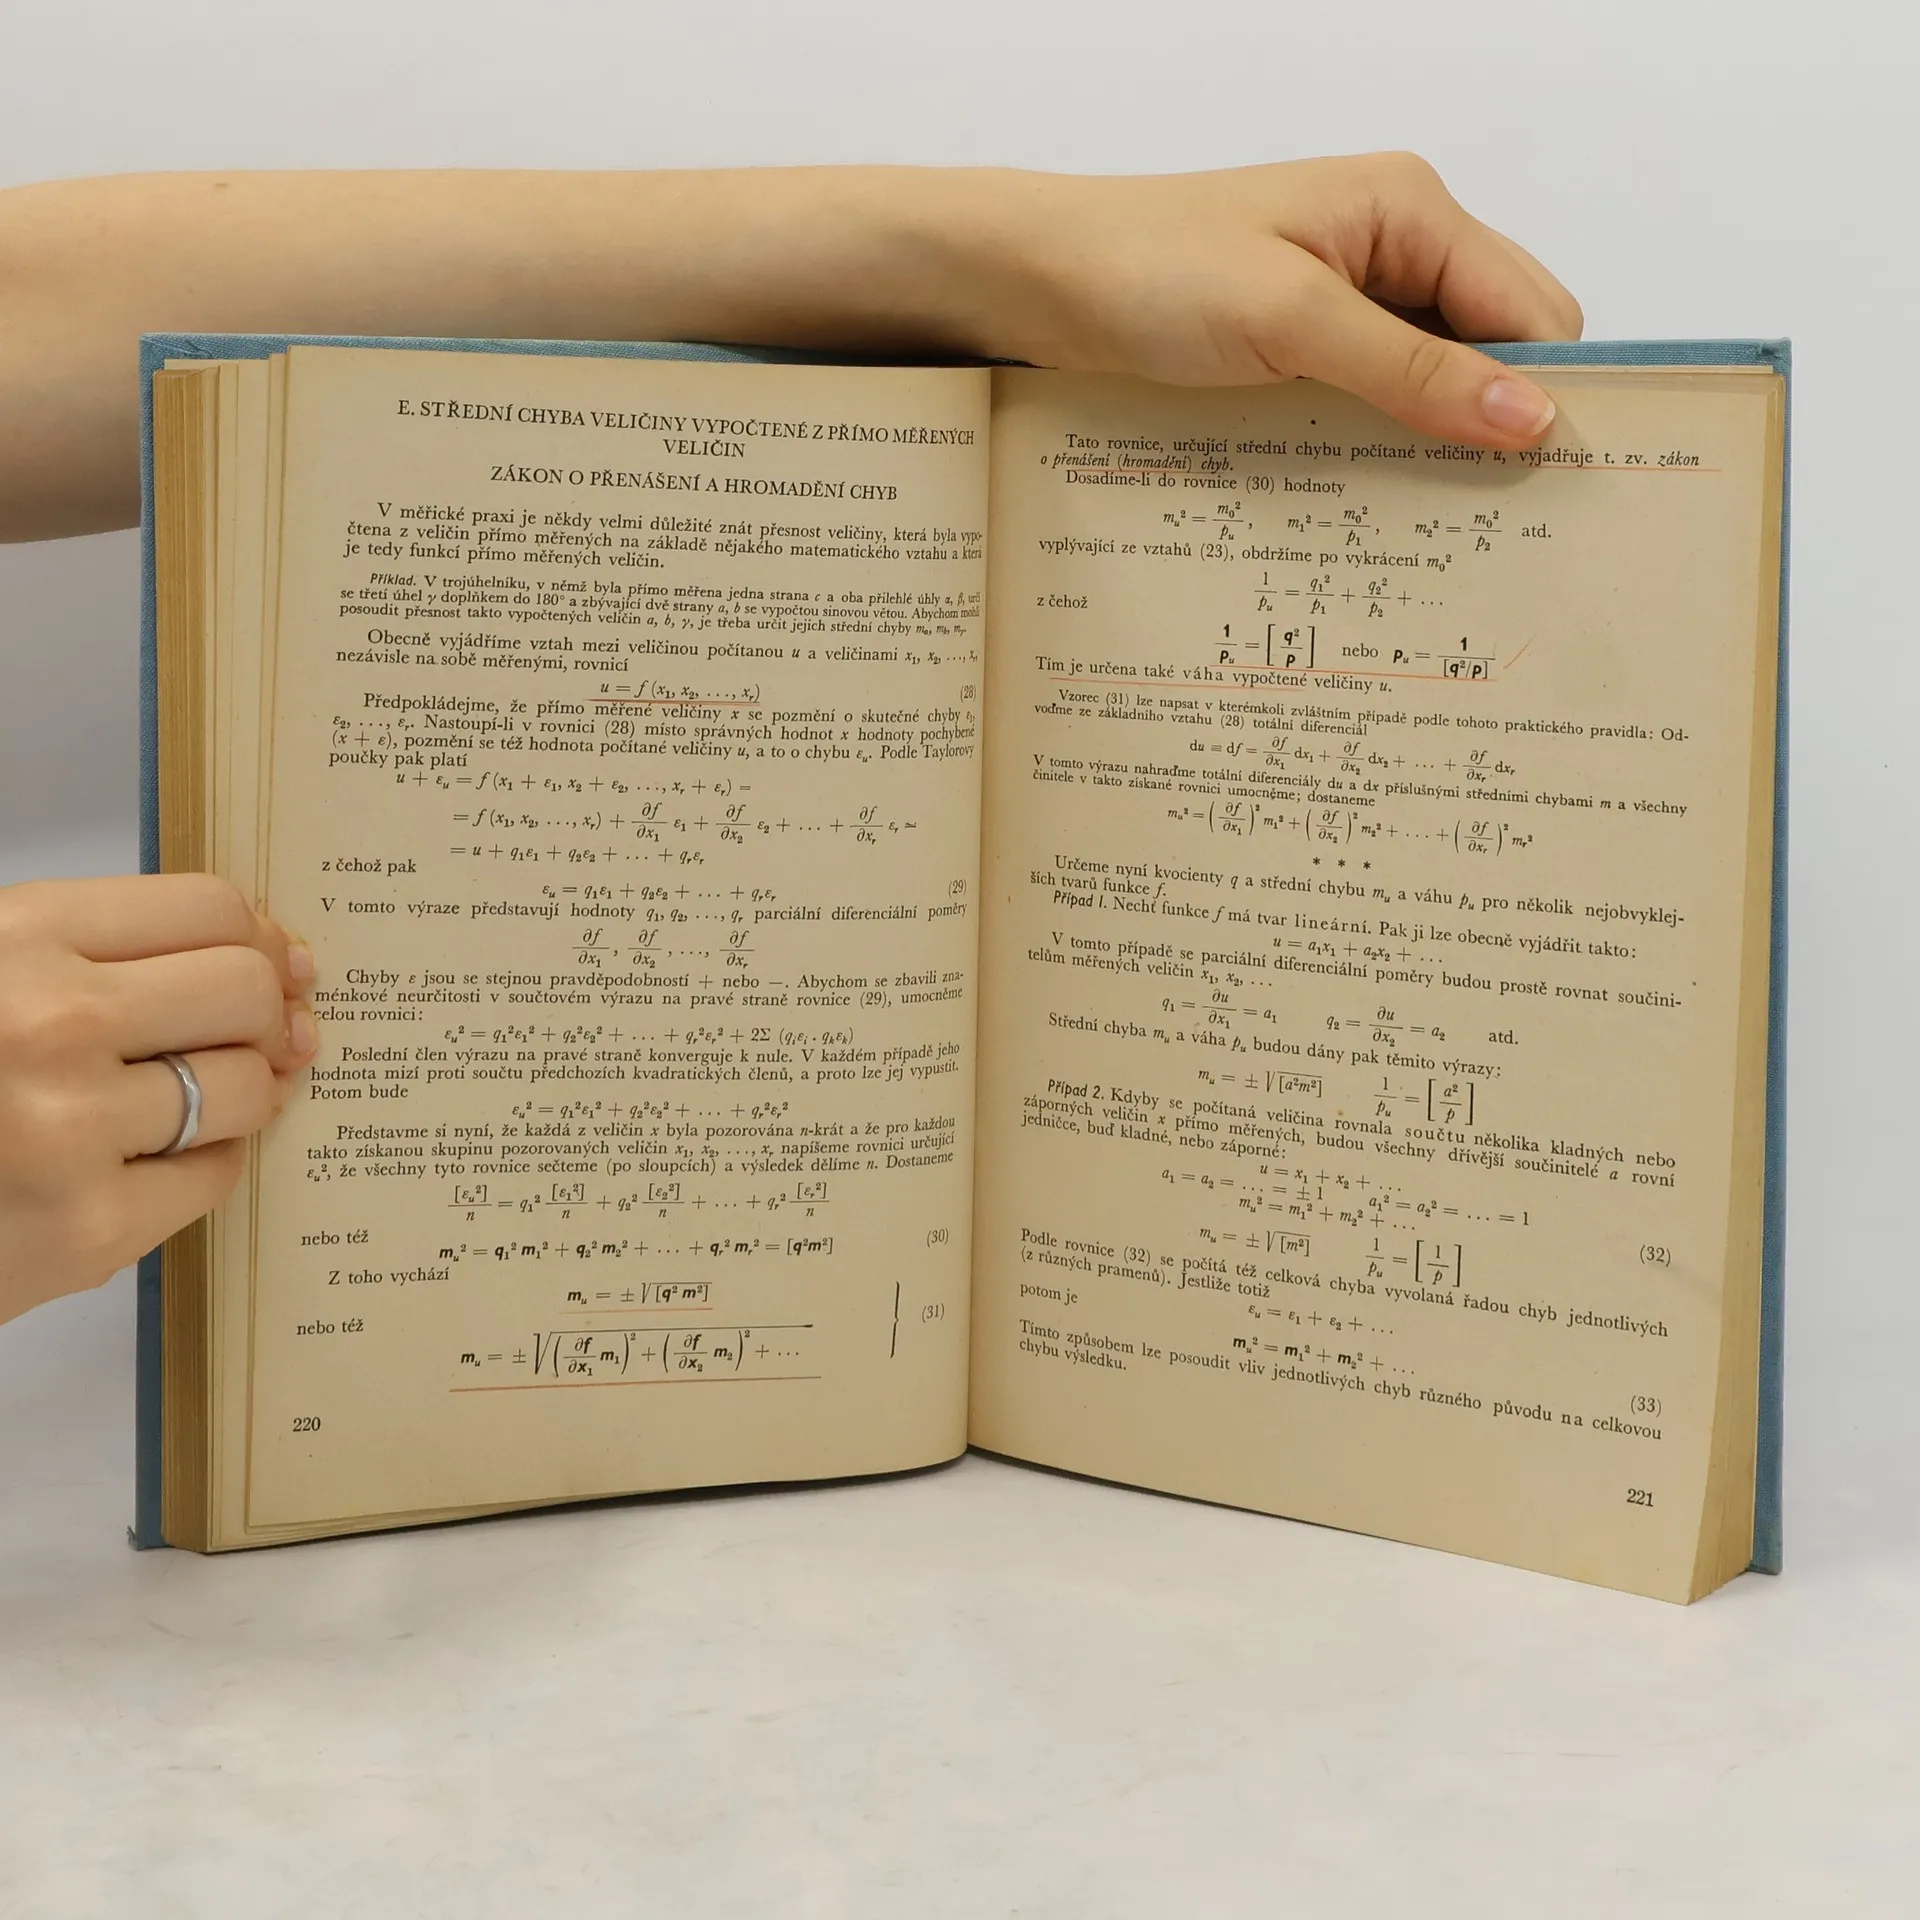 E. STŘEDNÍ CHYBA VELIČINY VYPOČTENÉ Z PŘÍMO MĚŘENÝCH
VELIČIN
ZÁKON O PŘENÁŠENÍ A HROMADĚNÍ CHYB
V měřické praxi je někdy velmi důležité znát přesnost veličiny, která byla vypo-
čtena z veličin přímo měřených na základě nějakého matematického vztahu a která
je tedy funkcí přímo měřených veličin.
Příklad. V trojúhelníku, v němž byla přímo měřena jedna strana c a oba přilehlé úhly α, β, určí
se třetí úhel γ doplňkem do 180° a zbývající dvě strany a, b se vypočtou sinovou větou. Abychom mohli
posoudit přesnost takto vypočtených veličin a, b, γ, je třeba určit jejich střední chyby mₐ, m_b, m_γ.
Obecně vyjádříme vztah mezi veličinou počítanou u a veličinami x₁, x₂, ..., xᵣ
nezávisle na sobě měřenými, rovnicí
u = f (x₁, x₂, ..., xᵣ) (28)
Předpokládejme, že přímo měřené veličiny x se pozmění o skutečné chyby ε₁,
ε₂, ..., εᵣ. Nastoupí-li v rovnici (28) místo správných hodnot x hodnoty pochybené
(x + ε), pozmění se též hodnota počítané veličiny u, a to o chybu εᵤ. Podle Taylorovy
poučky pak platí
u + εᵤ = f (x₁ + ε₁, x₂ + ε₂, ..., xᵣ + εᵣ) =
= f (x₁, x₂, ..., xᵣ) + ∂f/∂x₁ ε₁ + ∂f/∂x₂ ε₂ + ... + ∂f/∂xᵣ εᵣ =
= u + q₁ε₁ + q₂ε₂ + ... + qᵣεᵣ
z čehož pak
εᵤ = q₁ε₁ + q₂ε₂ + ... + qᵣεᵣ (29)
V tomto výraze představují hodnoty q₁, q₂, ..., qᵣ parciální diferenciální poměry
∂f/∂x₁, ∂f/∂x₂, ..., ∂f/∂xᵣ
Chyby ε jsou se stejnou pravděpodobností + nebo —. Abychom se zbavili zna-
ménkové neurčitosti v součtovém výrazu na pravé straně rovnice (29), umocněme
celou rovnici:
εᵤ² = q₁²ε₁² + q₂²ε₂² + ... + qᵣ²εᵣ² + 2Σ (qᵢεᵢ . qₖεₖ)
Poslední člen výrazu na pravé straně konverguje k nule. V každém případě jeho
hodnota mizí proti součtu předchozích kvadratických členů, a proto lze jej vypustit.
Potom bude
εᵤ² = q₁²ε₁² + q₂²ε₂² + ... + qᵣ²εᵣ²
Představme si nyní, že každá z veličin x byla pozorována n-krát a že pro každou
takto získanou skupinu pozorovaných veličin x₁, x₂, ..., xᵣ napíšeme rovnici určující
εᵤ², že všechny tyto rovnice sečteme (po sloupcích) a výsledek dělíme n. Dostaneme
[εᵤ²]/n = q₁² [ε₁²]/n + q₂² [ε₂²]/n + ... + qᵣ² [εᵣ²]/n
nebo též
mᵤ² = q₁² m₁² + q₂² m₂² + ... + qᵣ² mᵣ² = [q²m²] (30)
Z toho vychází
mᵤ = ± √[q² m²]
nebo též (31)
mᵤ = ± √(∂f/∂x₁ m₁)² + (∂f/∂x₂ m₂)² + ...
220
Tato rovnice, určující střední chybu počítané veličiny u, vyjadřuje t. zv. zákon
o přenášení (hromadění) chyb.
Dosadíme-li do rovnice (30) hodnoty
mᵤ² = m₀²/pᵤ, m₁² = m₀²/p₁, m₂² = m₀²/p₂ atd.
vyplývající ze vztahů (23), obdržíme po vykrácení m₀²
1/pᵤ = q₁²/p₁ + q₂²/p₂ + ...
z čehož
1/pᵤ = [q²/p] nebo pᵤ = 1/[q²/p]
Tím je určena také váha vypočtené veličiny u.
Vzorec (31) lze napsat v kterémkoli zvláštním případě podle tohoto praktického pravidla: Od-
voďme ze základního vztahu (28) totální diferenciál
du ≡ df = ∂f/∂x₁ dx₁ + ∂f/∂x₂ dx₂ + ... + ∂f/∂xᵣ dxᵣ
V tomto výrazu nahraďme totální diferenciály du a dx příslušnými středními chybami m a všechny
činitele v takto získané rovnici umocněme; dostaneme
mᵤ² = (∂f/∂x₁)² m₁² + (∂f/∂x₂)² m₂² + ... + (∂f/∂xᵣ)² mᵣ²
* * *
Určeme nyní kvocienty q a střední chybu mᵤ a váhu pᵤ pro několik nejobvyklej-
ších tvarů funkce f.
Případ 1. Nechť funkce f má tvar lineární. Pak ji lze obecně vyjádřit takto:
u = a₁x₁ + a₂x₂ + ...
V tomto případě se parciální diferenciální poměry budou prostě rovnat součini-
telům měřených veličin x₁, x₂, ...
q₁ = ∂u/∂x₁ = a₁ q₂ = ∂u/∂x₂ = a₂ atd.
Střední chyba mᵤ a váha pᵤ budou dány pak těmito výrazy:
mᵤ = ± √[a²m²] 1/pᵤ = [a²/p]
Případ 2. Kdyby se počítaná veličina rovnala součtu několika kladných nebo
záporných veličin x přímo měřených, budou všechny dřívější součinitelé a rovní
jedničce, buď kladné, nebo záporné:
u = x₁ + x₂ + ...
a₁ = a₂ = ... = ± 1 a₁² = a₂² = ... = 1
mᵤ² = m₁² + m₂² + ...
mᵤ = ± √[m²] 1/pᵤ = [1/p] (32)
Podle rovnice (32) se počítá též celková chyba vyvolaná řadou chyb jednotlivých
(z různých pramenů). Jestliže totiž
εᵤ = ε₁ + ε₂ + ...
potom je
mᵤ² = m₁² + m₂² + ... (33)
Tímto způsobem lze posoudit vliv jednotlivých chyb různého původu na celkovou
chybu výsledku.
221